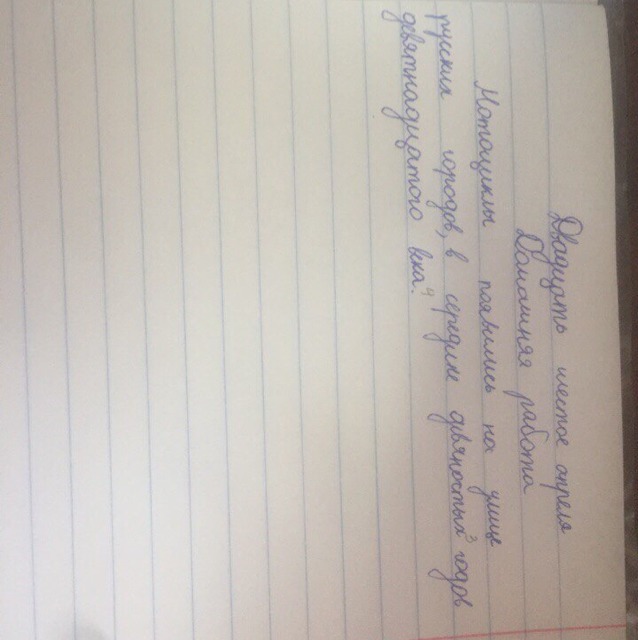 Двадцать шестое апреля
Домашняя работа
Мотоциклы появились на улицы
русских городов, в средине девяностых³ годов
девятнадцатого века.⁴